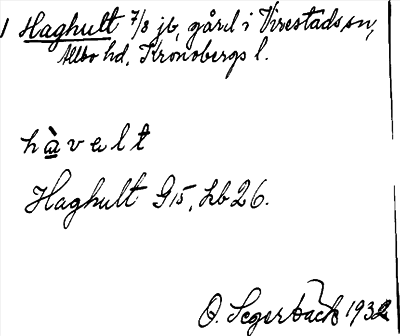 1 Haghult 7/8 jb, gård i Virestads sn,
Allbo hd, Kronobergs l.
hàvalt
Haghult G15, hb 26.
O. Segerbäck 1932